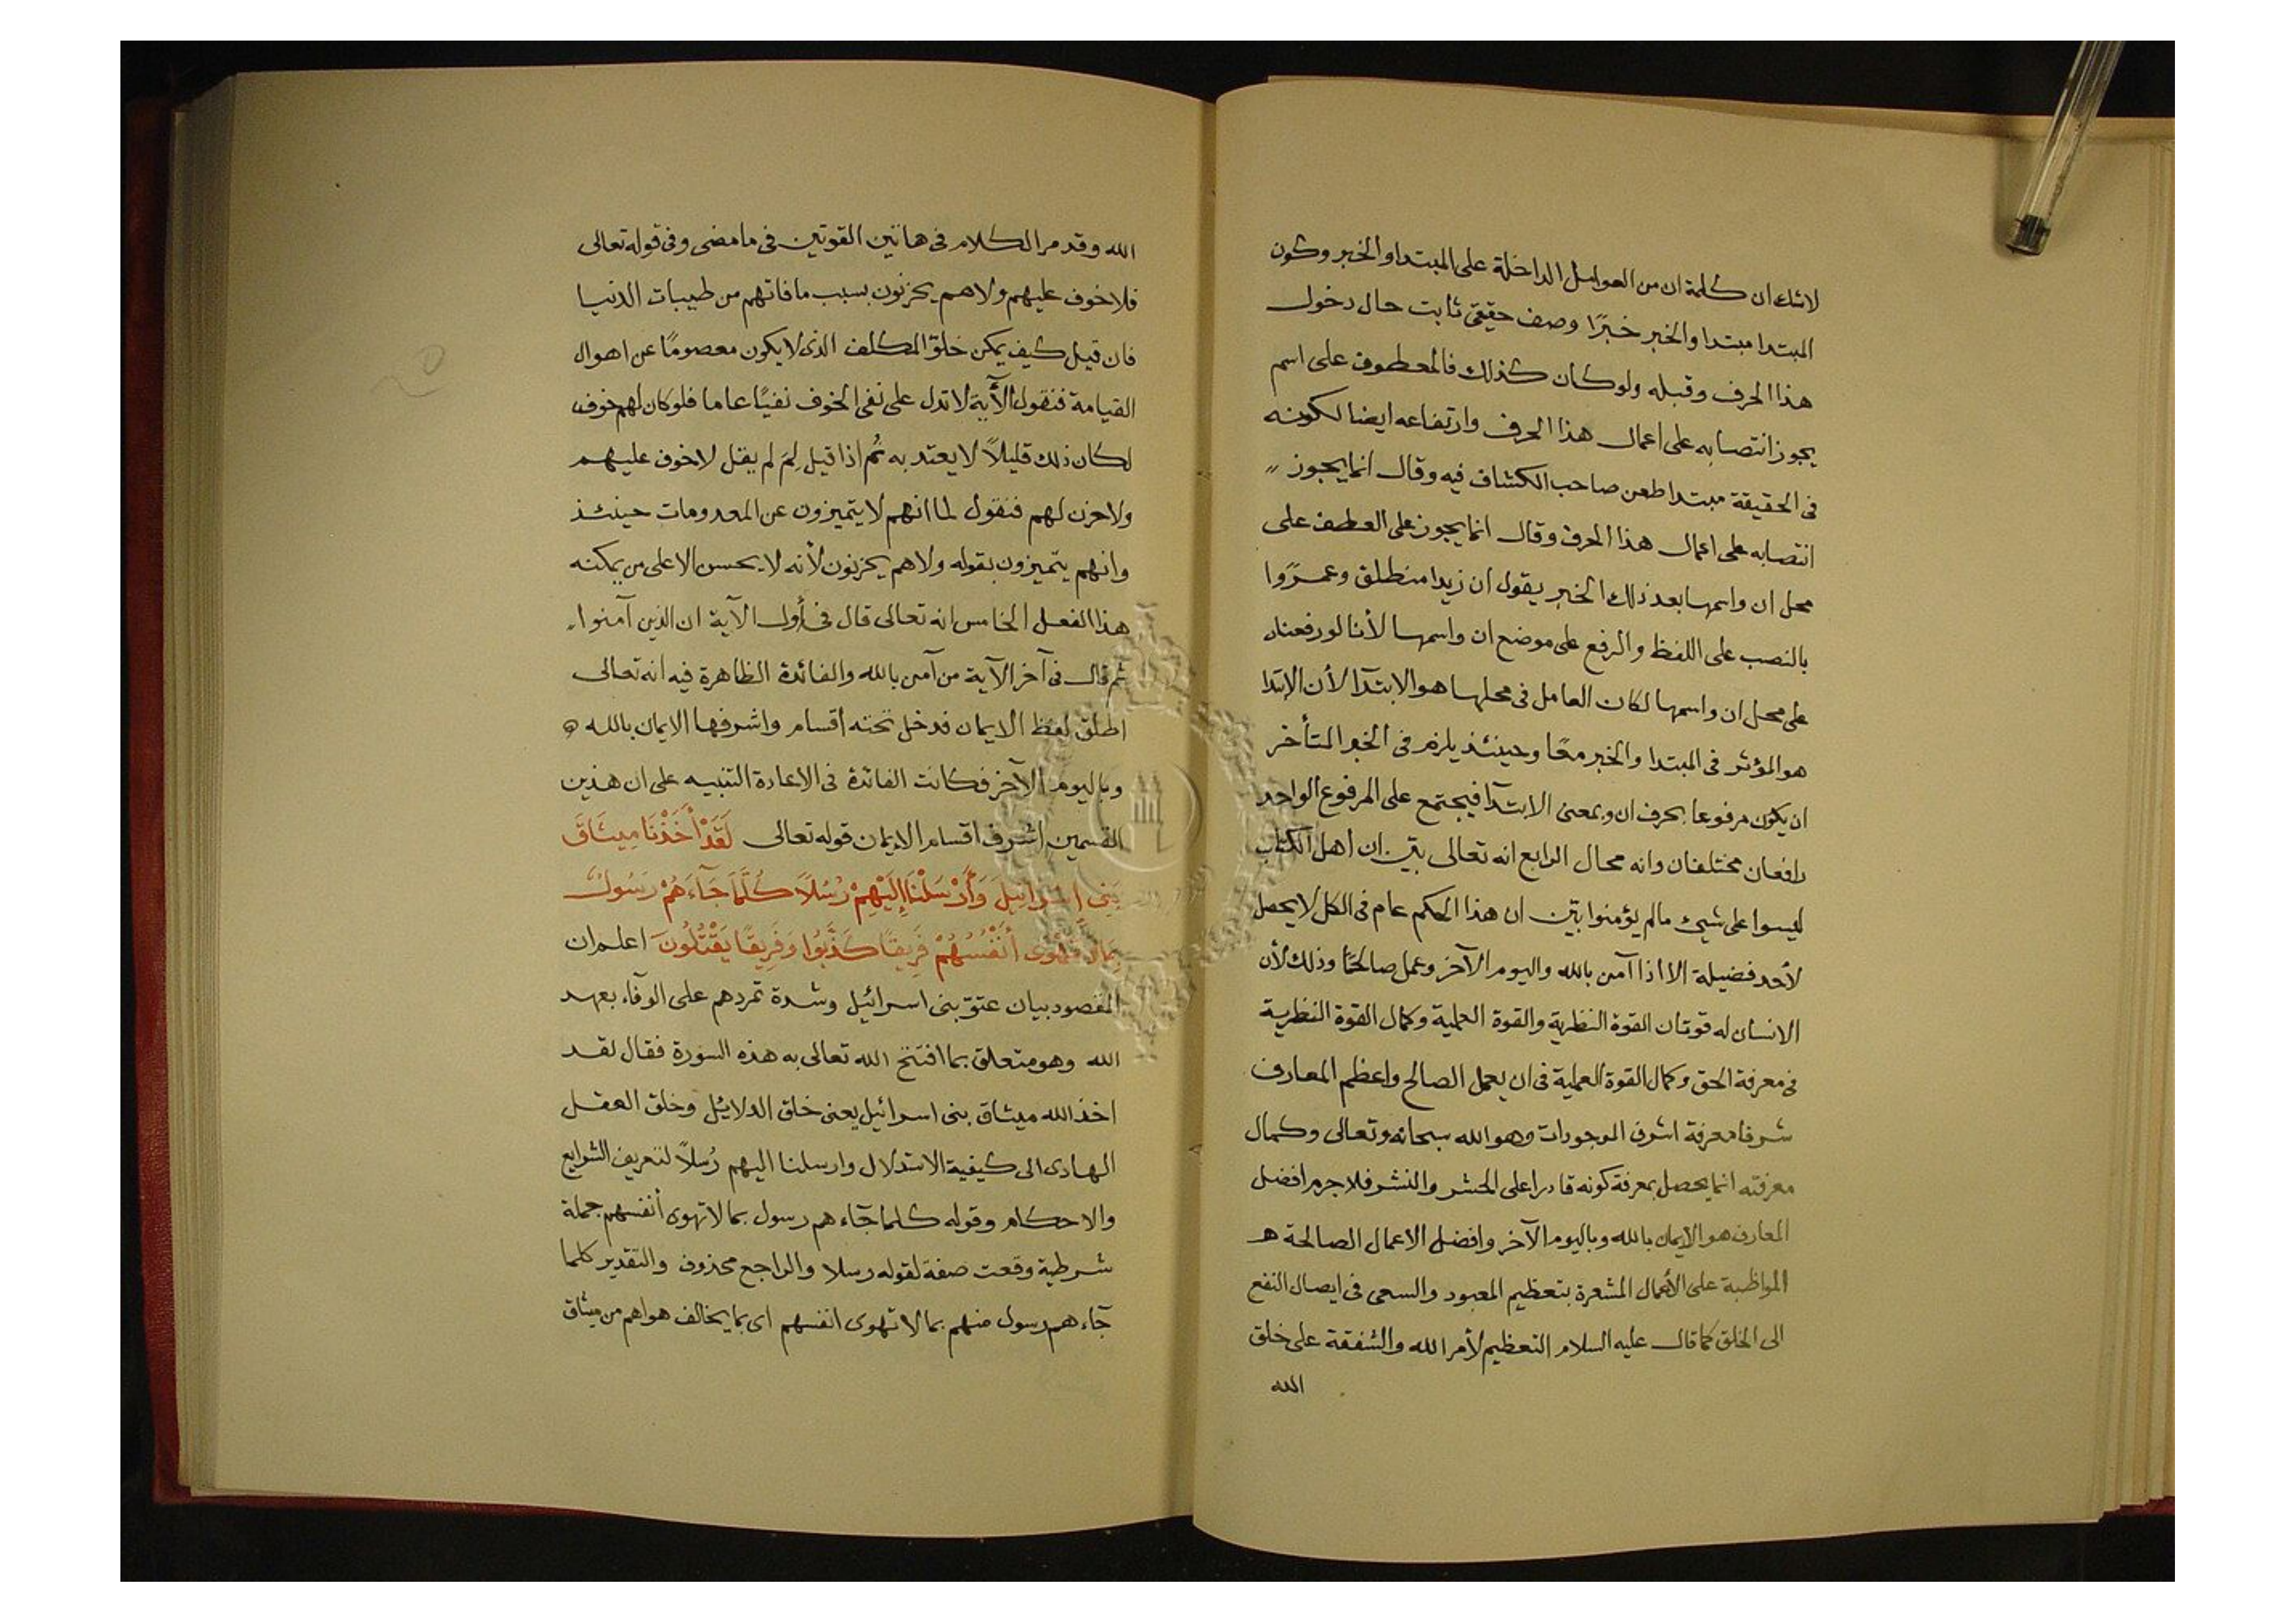 لاشك ان كلمة ان من العوامل الداخلة على المبتدا والخبر وكون
المبتدا مبتدا والخبر خبرًا وصف حقيقى ثابت حال دخول
هذا الحرف وقبله ولو كان كذلك فالمعطوف على اسم
يجوز انتصابه على اعمال هذا الحرف وارتفاعه ايضا لكونه
فى الحقيقة مبتدا طعن صاحب الكشاف فيه وقال انما يجوز
انتصابه على اعمال هذا الحرف وقال انما يجوز على العطف على
محل ان واسمها بعد ذلك الخبر يقول ان زيدا منطلق وعمرًوا
بالنصب على اللفظ والرفع على موضع ان واسمها لأنا لو رفعناه
على محل ان واسمها لكان العامل فى محلها هو الابتدآ لأن الابتدا
هو المؤثر فى المبتدا والخبر معًا وحينئذ يلزم فى الخبر المتأخر
ان يكون مرفوعا بحرف ان وبمعنى الابتدآ فيجتمع على المرفوع الواحد
رافعان مختلفان وانه محال الرابع انه تعالى بيّن ان اهل الكتاب
ليسوا على شيئ مالم يؤمنوا بيّن ان هذا الحكم عام فى الكل لا يحصل
لأحد فضيلة الا اذا آمن بالله واليوم الآخر وعمل صالحًا وذلك لأن
الانسان له قوتان القوة النظرية والقوة العملية وكمال القوة النظرية
فى معرفة الحق وكمال القوة العملية فى ان يعمل الصالح واعظم المعارف
شرفا معرفة اشرف الموجودات وهو الله سبحانه وتعالى وكمال
معرفته انما يحصل بمعرفة كونه قادرا على الحشر والنشر فلا جرم افضل
المعارف هو الايمان بالله وباليوم الآخر وافضل الاعمال الصالحة هـ
المواظبة على الأعمال المشعرة بتعظيم المعبود والسعى فى ايصال النفع
الى الخلق كما قال عليه السلام التعظيم لأمر الله والشفقة على خلق
الله
الله وقد مر الكلام فى هاتين القوتين فى ما مضى وفى قوله تعالى
فلا خوف عليهم ولا هم يحزنون بسبب ما فاتهم من طيبات الدنيا
فان قيل كيف يمكن خلق المكلف الذى لا يكون معصومًا عن اهوال
القيامة فنقول الآية لا تدل على نفى الخوف نفيًا عاما فلو كان لهم خوف
لكان ذلك قليلاً لا يعتد به ثُم اذا قيل لِمَ لم يقل لا خوف عليهم
ولا حزن لهم فنقول لما انهم لا يتميزون عن المعدومات حينئذ
وانهم يتميزون بقوله ولا هم يحزنون لأنه لا يحسن الا على من يمكنه
هذا الفعل الخامس انه تعالى قال فى أول الآية ان الذين آمنوا
ثم قال فى آخر الآية من آمن بالله والفائدة الظاهرة فيه انه تعالى
اطلق لفظ الايمان فدخل تحته اقسام واشرفها الايمان بالله
وباليوم الآخر فكانت الفائدة فى الاعادة التنبيه على ان هذين
القسمين اشرف اقسام الايمان قوله تعالى لَقَدْ أَخَذْنَا مِيثَاقَ
بَنِى إسرائيلَ وَأَرْسَلْنَا إِلَيْهِمْ رُسُلاً كُلَّمَا جَآءَهُمْ رَسُولٌ
بِمَا لَا تَهْوَى أَنْفُسُهُمْ فَرِيقًا كَذَّبُوا وَفَرِيقًا يَقْتُلُونَ اعلم ان
المقصود بيان عتوّ بنى اسرائيل وشدة تمردهم على الوفآء بعهد
الله وهو متعلق بما افتتح الله تعالى به هذه السورة فقال لقد
اخذ الله ميثاق بنى اسرائيل يعنى خلق الدلايل وخلق العقل
الهادى الى كيفية الاستدلال وارسلنا اليهم رُسلاً لتعريف الشرايع
والاحكام وقوله كلما جآءهم رسول بما لا تهوى أنفسهم جملة
شرطية وقعت صفة لقوله رسلا والراجع محذوف والتقدير كلما
جآءهم رسول منهم بما لا تهوى انفسهم اى بما يخالف هواهم من ميثاق